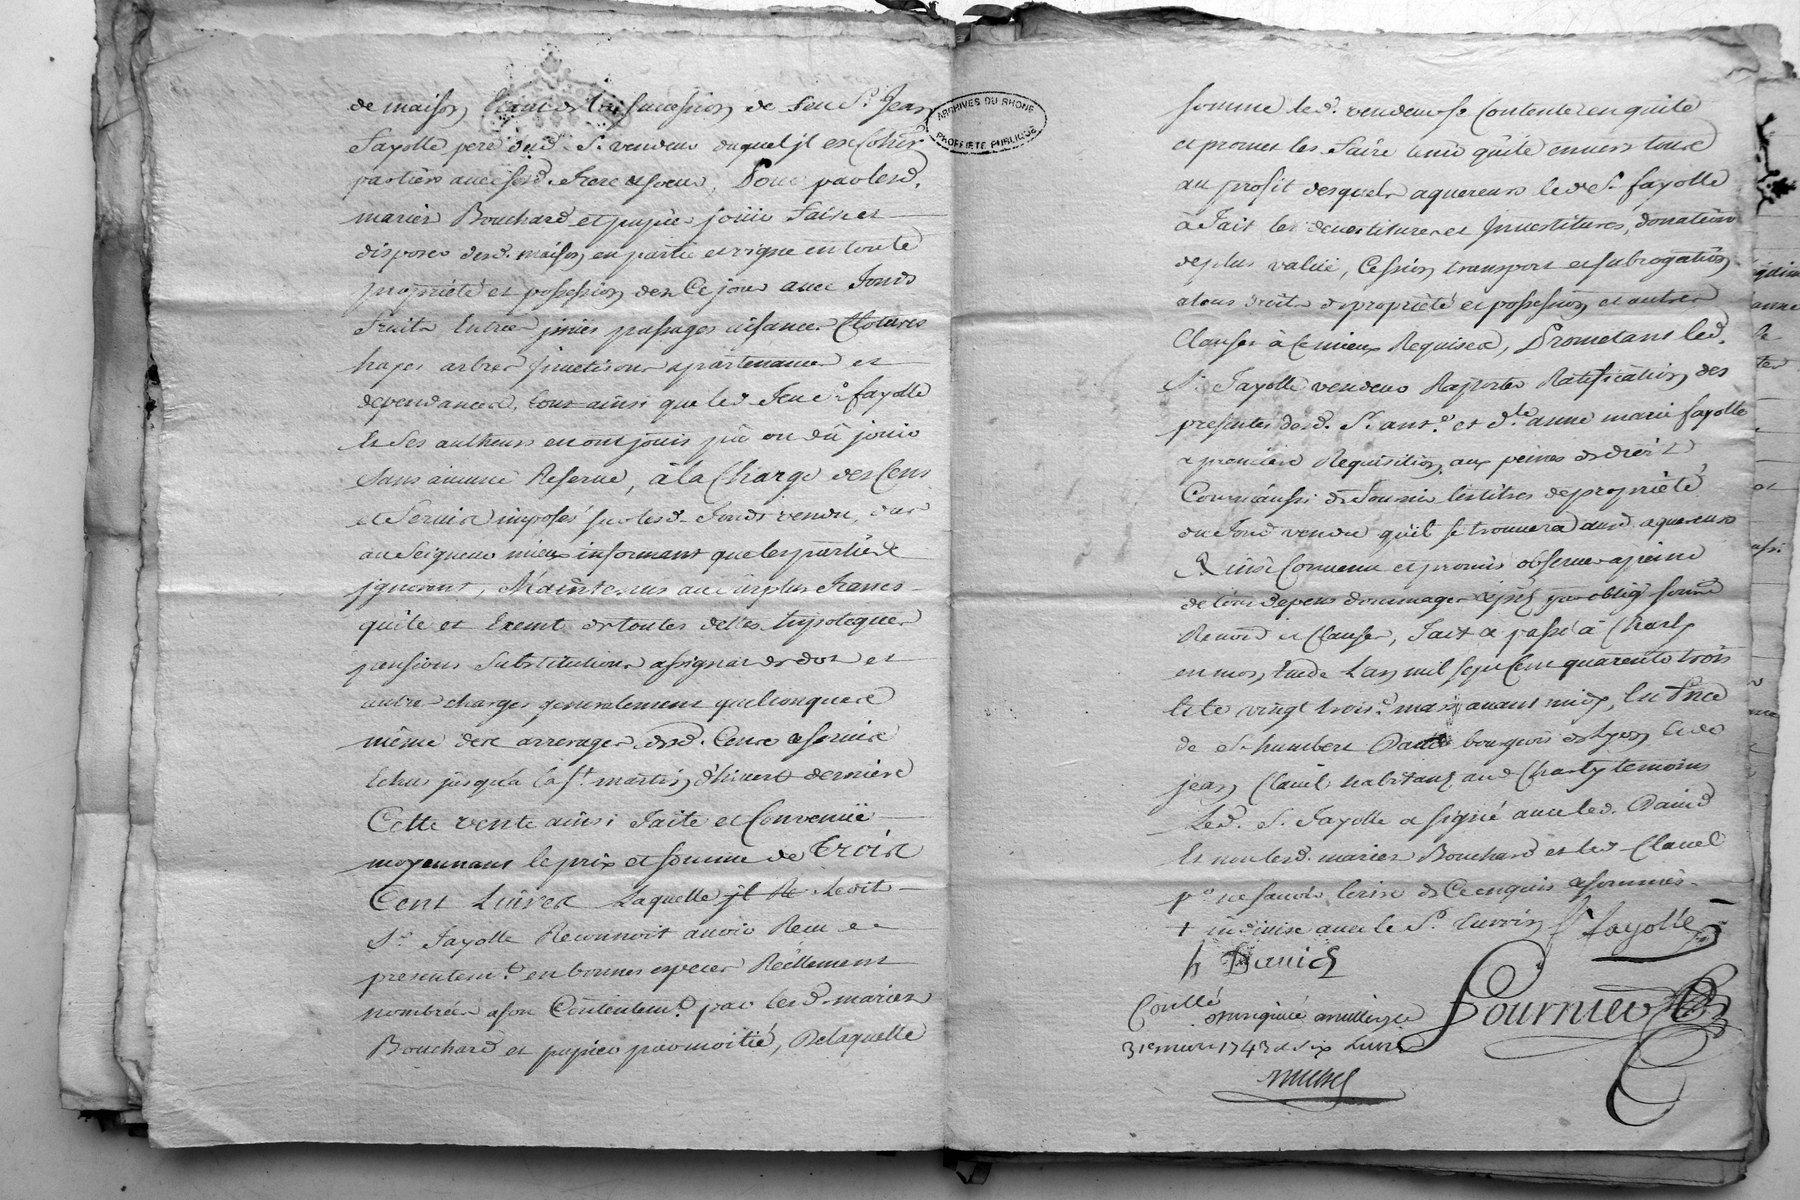 de maison de la succession de feu Sr. Jean
fayolle pere dud. Sr. vendeur duquel jl est Coher
partiers avec sesd. frere & soeur, Pour par lesd.
mariés Bouchard et papier jouir faire et
disposer desd. maison en partie et vigne en toute
proprieté et possession dez Ce jour avec fonds
fruits Entrées jssües passages aisances Clotures
hayes arbres fruetisons apartenances et
dependances, tout ainsi que led. feu Sr. fayolle
et Ses autheurs en ont jouis pû ou dû jouir
Sans aucune Reserve, à la Charge des Cens
et Servis imposés sur lesd. fonds vendu, dus
au Seigneur mieux informant que les parties
jgnorent, Maintenus au surplus francs
quite et Exemt de toutes dettes hypoteques
pensions Substitutions assignat de dot et
autres charges generalement quelconques
même des arrerages desd. Cens & servis
Echus jusqu'a la St. martin d'hiver derniere
Cette vente ainsi faite et Convenüe
moyennant le prix et somme de trois
Cent Livres Laquelle jl Re Ledit
Sr. fayolle Reconnoit avoir Reçu
presentemt. en bonnes especes Reellement
nombrées a son Contentemt. par lesd. mariés
Bouchard et papier par moitié, De laquelle
ARCHIVES DU RHONE
PROPRIETE PUBLIQUE
somme led. vendeur se Contente en quite
et promet les faire tenir quite envers tous
au profit desquels aquereurs led. Sr. fayolle
à fait les devestitures et Investitures, donation
de plus value, Cession transport et subrogation
a tous droits de proprieté et possession et autres
Clauses à Ce mieux Requises, Prometant led.
Sr. fayolle vendeur Raporter Ratification des
presentes desd. Sr. ant.e et dlle. anne marie fayolle
a premiere Requisition, aux peines de droit
Comme aussi de fournir les titres de proprieté
du fond vendu qu'il se trouvera auxd. aquereurs
Ainsi Convenu et promis observer a peine
de tous depens dommages par oblig. soum.
Renon.d et Clauses, fait et passé à Charly
en mon Etude L'an mil sept Cent quarente trois
et le vingt trois.e mars avant midy, En Pnce
de Sr. humbert David bourgeois de Lyon et de
jean Clavel habitant aud. Charly temoins
Led. Sr. fayolle a signé avec led. David
Et non lesd. mariés Bouchard et led. Clavel
pr. ne savoir Ecrire de Ce enquis & sommés
+ indivise avec le Sr.
Fayolle
h David
Conllé
Fournier
31e mars 1743 Six Livres